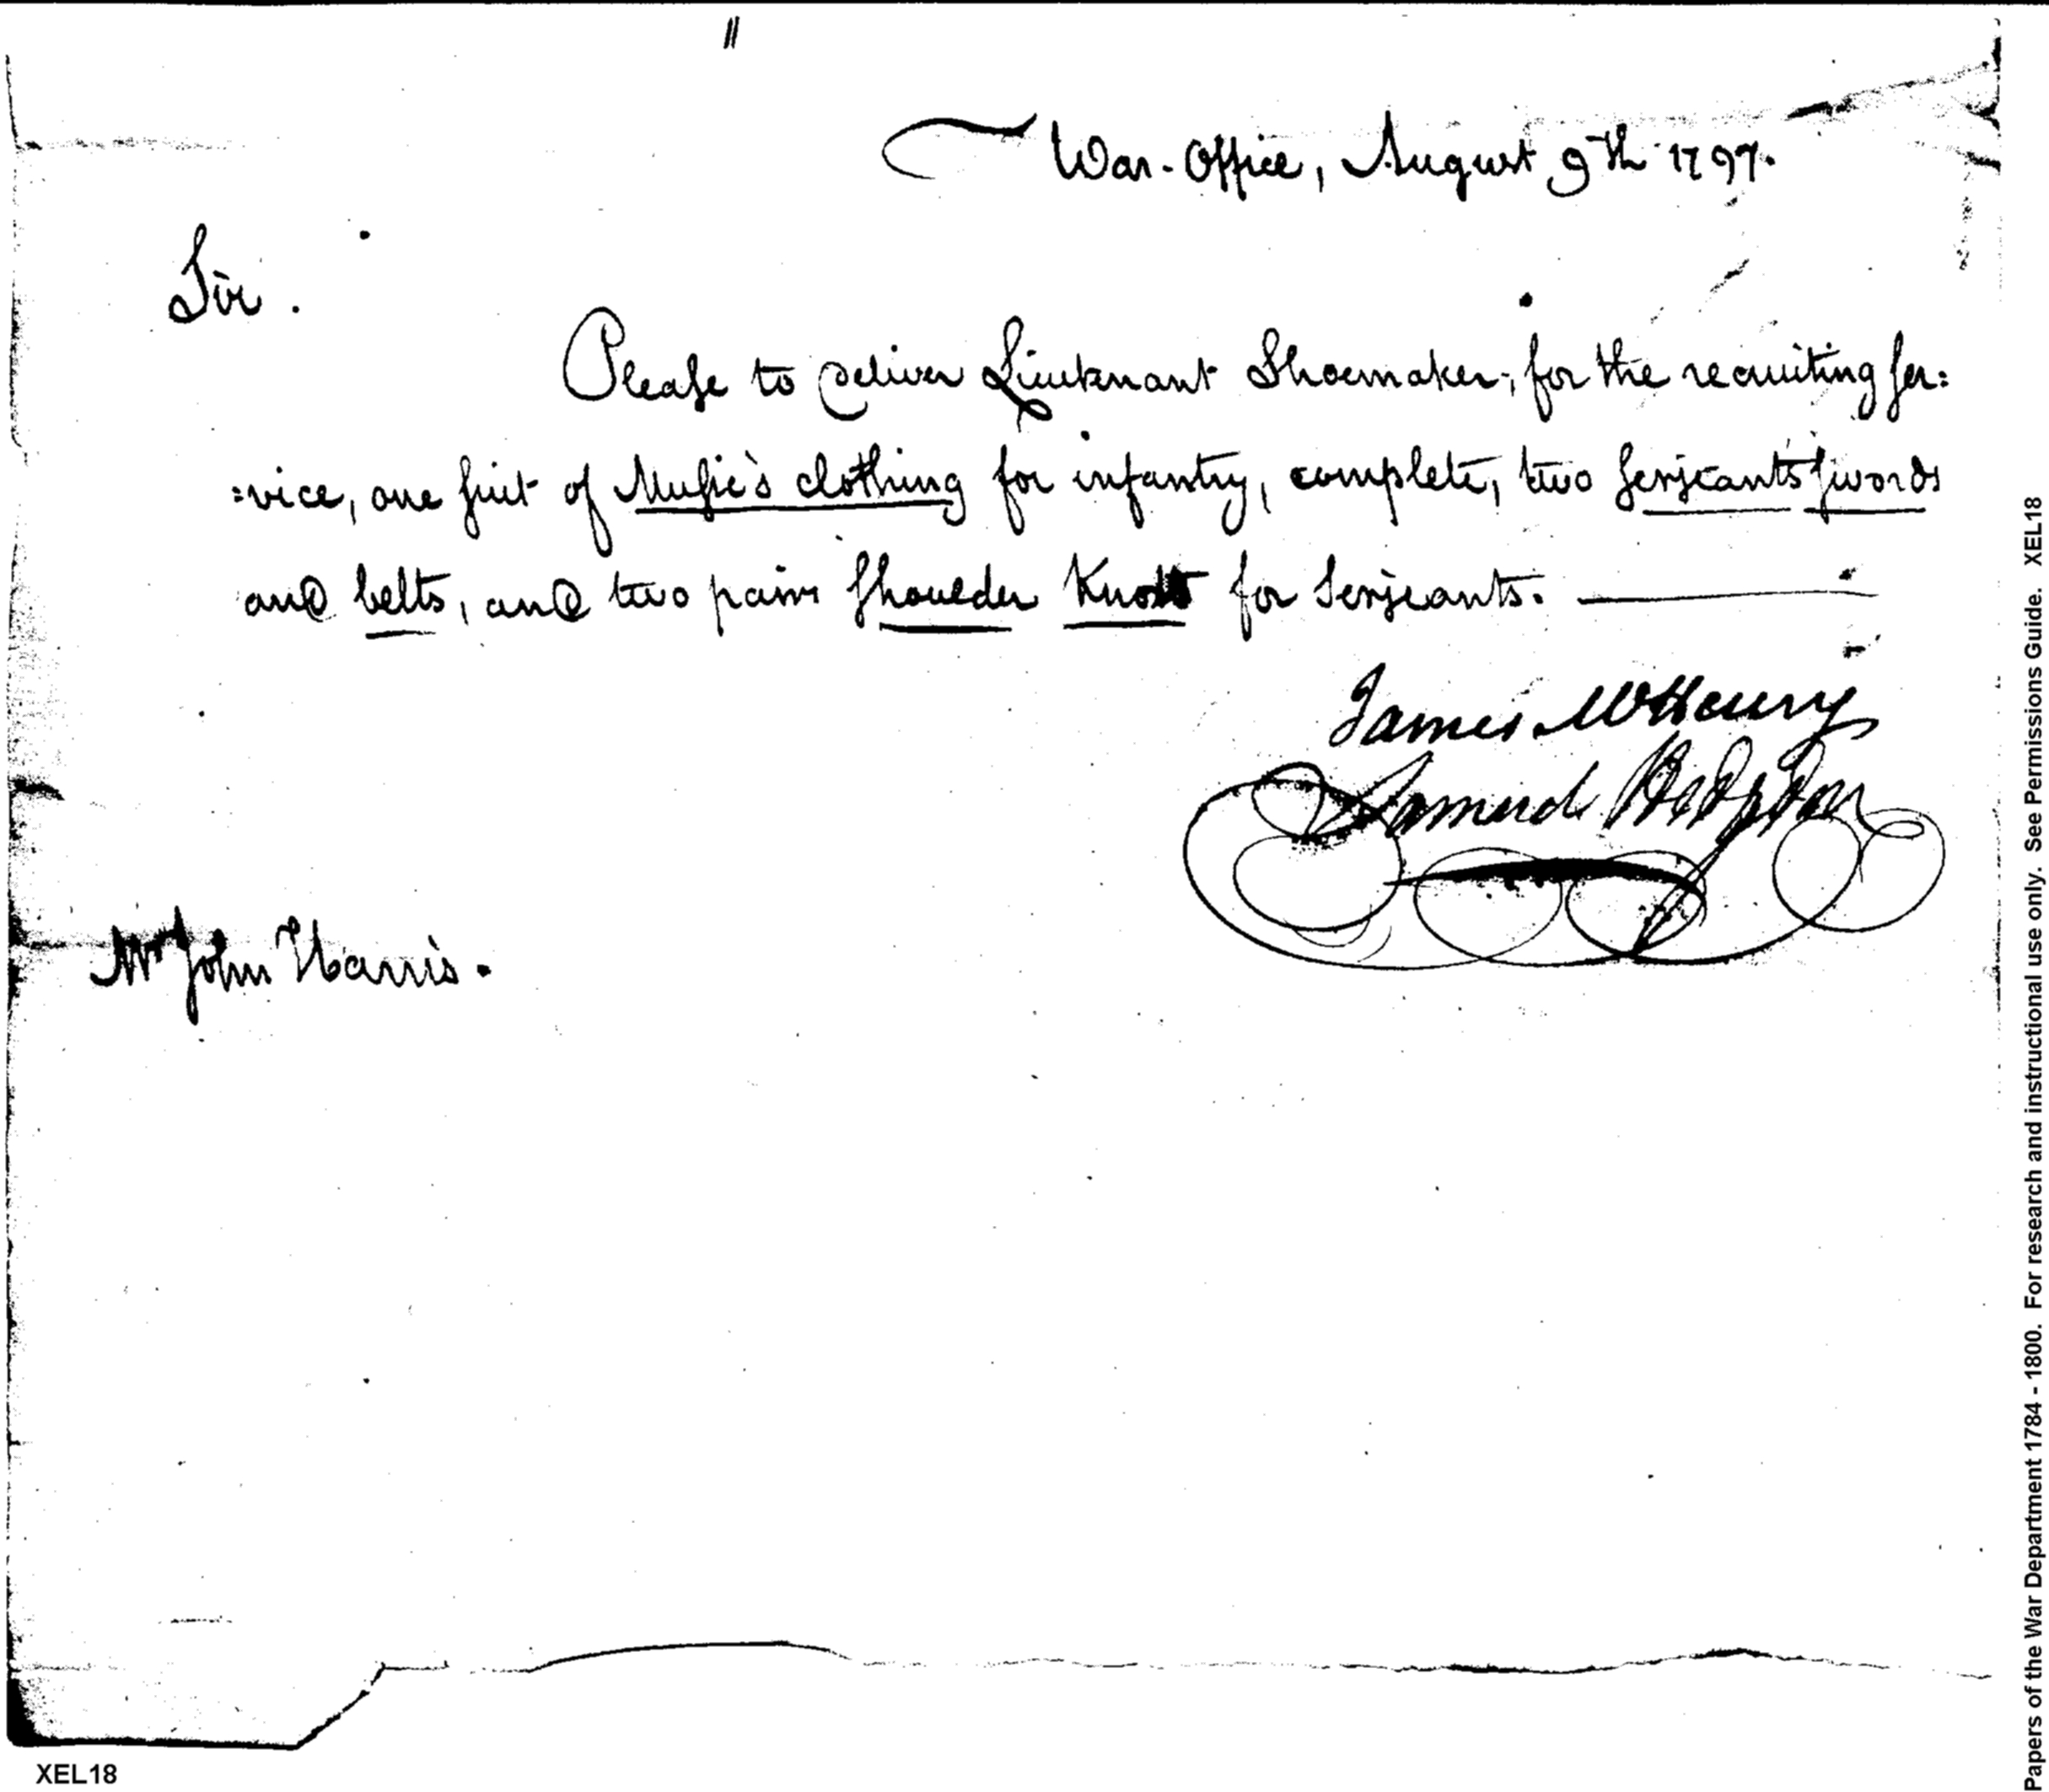 War-Office, August 9th 1797.
Sir.
Please to deliver Lieutenant Shoemaker, for the recruiting ser=
=vice, one suit of Music's clothing for infantry, complete, two serjeants swords
and belts, and two pairs shoulder Knots for Serjeants.
James McHenry
Samuel Hodgdon
Mr John Harris.
XEL18
Papers of the War Department 1784 - 1800. For research and instructional use only. See Permissions Guide. XEL18